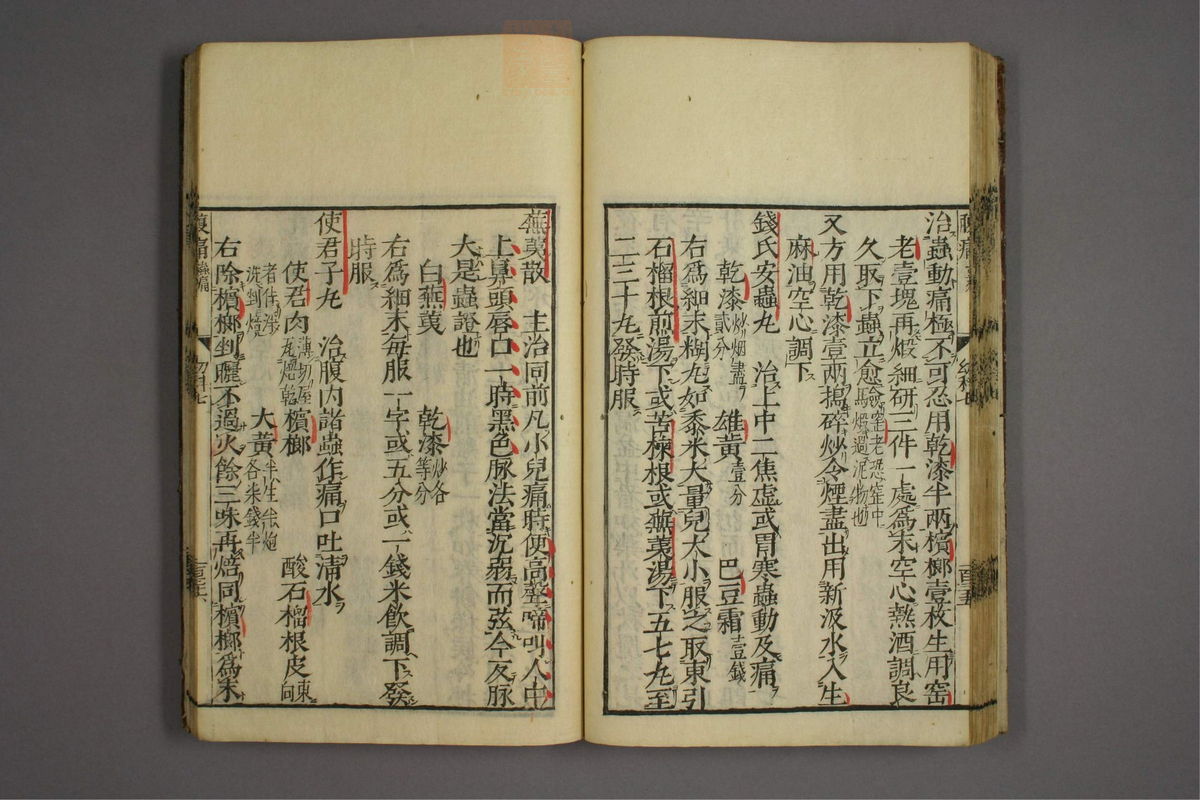 治蟲動痛極不可忍用乾漆半兩檳榔壹枚生用窑
老壹塊再煅細研三件一處為末空心熱酒調良
久取下蟲立愈
馬煅過泥物也
又方用乾漆壹兩搗碎炒令煙盡出用新汲水入生
麻油空心調下
錢氏安蟲丸 治上中二焦虛或胃寒蟲動及痛
乾漆炒烟盡貳分 雄黃壹分 巴豆霜壹錢
右為細末糊丸如黍米大量兒大小服之取東引
石榴根煎湯下或苦楝根或蕪荑湯下五七丸至
二三十丸發時服
蕪荑散 主治同前凡小兒痛時便高聲啼叫人中
上鼻頭唇口一時黑色脉法當沉弱而弦今反脉
大是蟲證也
白蕪荑 乾漆炒各等分
右為細末每服一字或五分或一錢米飲調下發
時服
使君子丸 治腹內諸蟲作痛口吐清水
使君肉薄切屋瓦焙乾 檳榔 酸石榴根皮東向
者佳淨洗剉焙 大黃半生半炮各朱錢半
右除檳榔剉曬不過火餘三味再焙同檳榔為末
腹痛